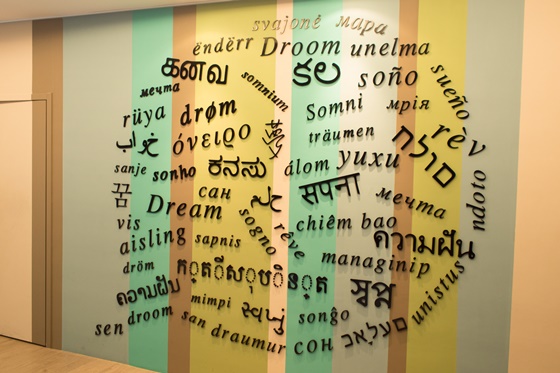 svajonė мара
ëndërr Droom unelma
கனவு కల soño sueño
мечта somnium Somni мрія
rüya drøm träumen rêv
όνειρο álom yuxu חלום
sanje sonho ಕನಸು सपना
꿈 сан мечта ndoto
Dream
vis sogno rêve chiêm bao
aisling sapnis ความฝัน
dröm managinip
ຄວາມຝັນ mimpi স্বপ্ন unistus
sen droom san draumur сон songo